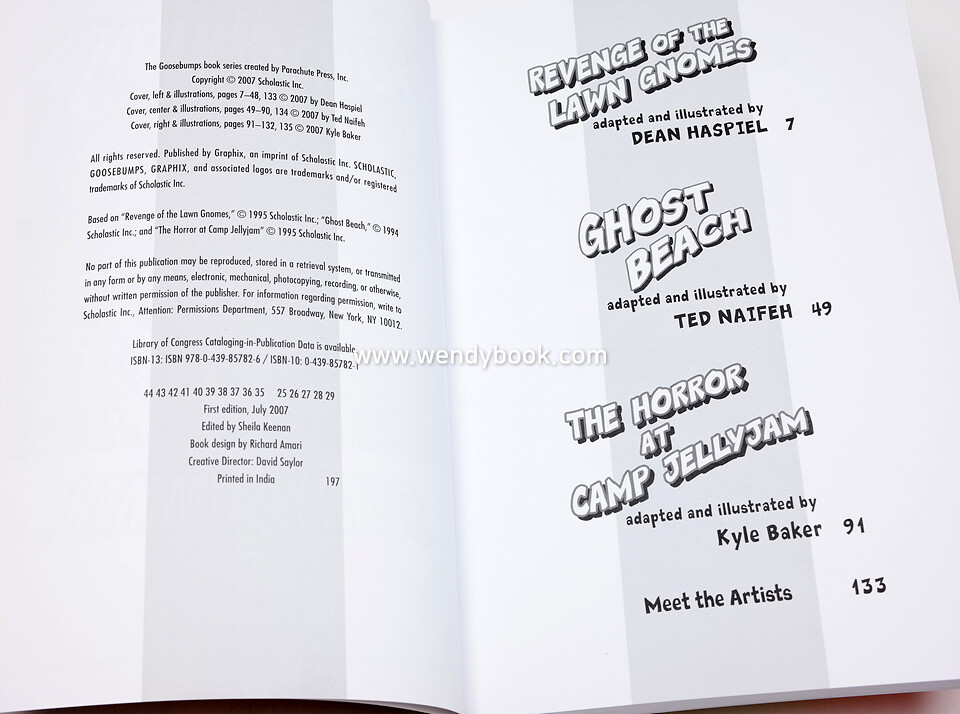 The Goosebumps book series created by Parachute Press, Inc.
Copyright © 2007 Scholastic Inc.
Cover, left & illustrations, pages 7–48, 133 © 2007 by Dean Haspiel
Cover, center & illustrations, pages 49–90, 134 © 2007 by Ted Naifeh
Cover, right & illustrations, pages 91–132, 135 © 2007 Kyle Baker
All rights reserved. Published by Graphix, an imprint of Scholastic Inc. SCHOLASTIC,
GOOSEBUMPS, GRAPHIX, and associated logos are trademarks and/or registered
trademarks of Scholastic Inc.
Based on "Revenge of the Lawn Gnomes," © 1995 Scholastic Inc.; "Ghost Beach," © 1994
Scholastic Inc.; and "The Horror at Camp Jellyjam" © 1995 Scholastic Inc.
No part of this publication may be reproduced, stored in a retrieval system, or transmitted
in any form or by any means, electronic, mechanical, photocopying, recording, or otherwise,
without written permission of the publisher. For information regarding permission, write to
Scholastic Inc., Attention: Permissions Department, 557 Broadway, New York, NY 10012.
Library of Congress Cataloging-in-Publication Data is available
ISBN-13: ISBN 978-0-439-85782-6 / ISBN-10: 0-439-85782-1
44 43 42 41 40 39 38 37 36 35 25 26 27 28 29
First edition, July 2007
Edited by Sheila Keenan
Book design by Richard Amari
Creative Director: David Saylor
Printed in India 197
REVENGE OF THE
LAWN GNOMES
adapted and illustrated by
DEAN HASPIEL 7
GHOST
BEACH
adapted and illustrated by
TED NAIFEH 49
THE HORROR
AT
CAMP JELLYJAM
adapted and illustrated by
Kyle Baker 91
Meet the Artists 133
www.wendybook.com